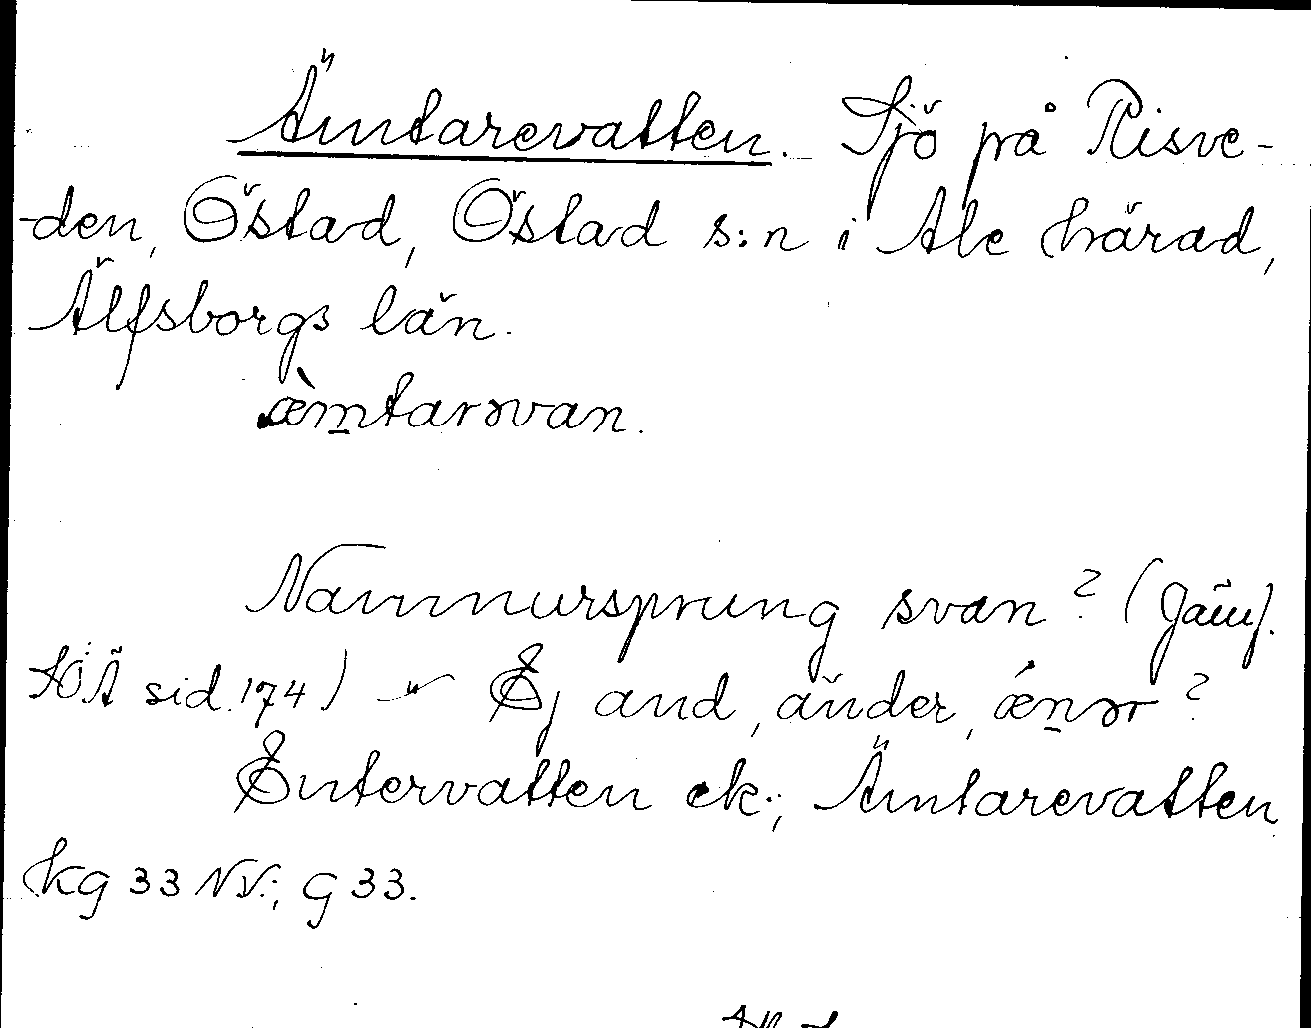 Ämtarevatten. Sjö på Risve-
den, Östad, Östad s:n i Ale härad,
Älfsborgs län.
æ̀mtarəvan.
Namnursprung svan? (Jämf.
SOÄ sid. 174) Ej and, änder, ǽnər?
Entervatten ek.; Ämtarevatten
hkg 33 NV.; G 33.